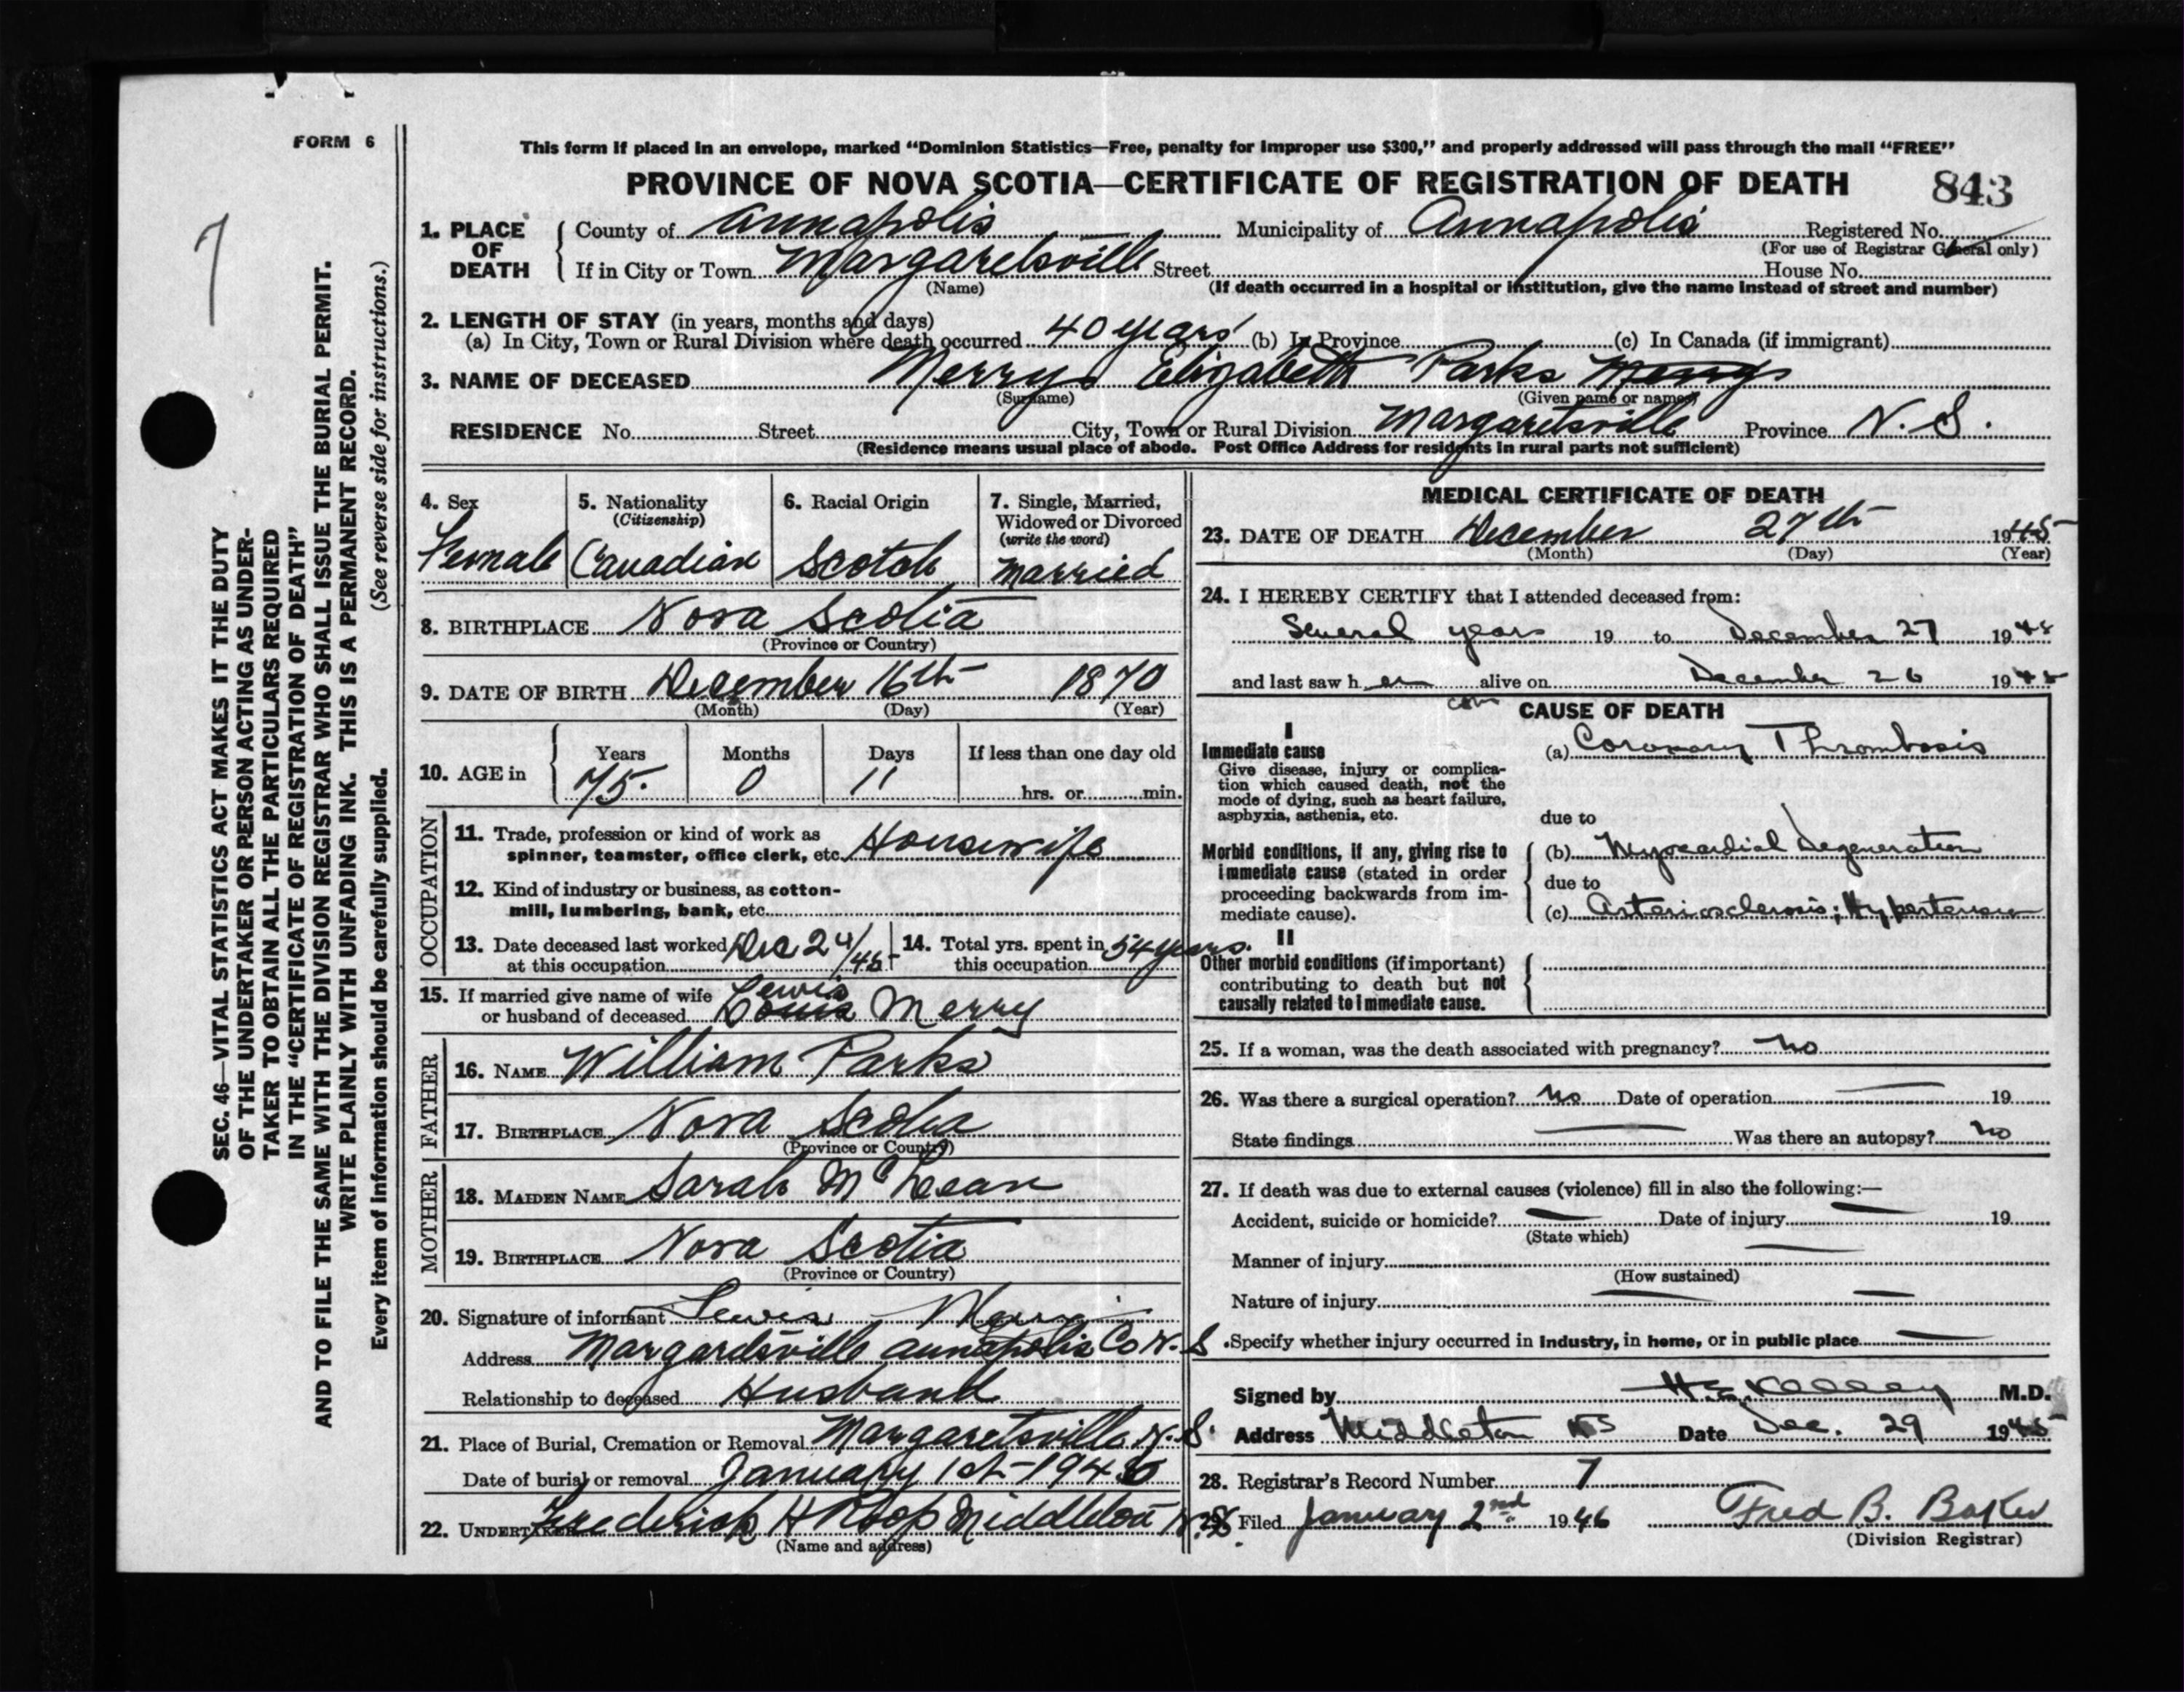 FORM 6
7
SEC. 46—VITAL STATISTICS ACT MAKES IT THE DUTY
OF THE UNDERTAKER OR PERSON ACTING AS UNDER-
TAKER TO OBTAIN ALL THE PARTICULARS REQUIRED
IN THE "CERTIFICATE OF REGISTRATION OF DEATH"
AND TO FILE THE SAME WITH THE DIVISION REGISTRAR WHO SHALL ISSUE THE BURIAL PERMIT.
WRITE PLAINLY WITH UNFADING INK. THIS IS A PERMANENT RECORD.
Every item of information should be carefully supplied. (See reverse side for instructions.)
This form if placed in an envelope, marked "Dominion Statistics—Free, penalty for improper use $300," and properly addressed will pass through the mail "FREE"
PROVINCE OF NOVA SCOTIA—CERTIFICATE OF REGISTRATION OF DEATH 843
1. PLACE OF DEATH County of Annapolis Municipality of Annapolis Registered No.
(For use of Registrar General only)
If in City or Town Margaretsville Street House No.
(Name) (If death occurred in a hospital or institution, give the name instead of street and number)
2. LENGTH OF STAY (in years, months and days)
(a) In City, Town or Rural Division where death occurred 40 years (b) In Province (c) In Canada (if immigrant)
3. NAME OF DECEASED Merry Elizabeth Parks Merry
(Surname) (Given name or names)
RESIDENCE No. Street City, Town or Rural Division Margaretsville Province N. S.
(Residence means usual place of abode. Post Office Address for residents in rural parts not sufficient)
4. Sex Female
5. Nationality (Citizenship) Canadian
6. Racial Origin Scotch
7. Single, Married, Widowed or Divorced (write the word) Married
8. BIRTHPLACE Nova Scotia
(Province or Country)
9. DATE OF BIRTH December 16th 1870
(Month) (Day) (Year)
10. AGE in Years 75 Months 0 Days 11 If less than one day old hrs. or min.
OCCUPATION
11. Trade, profession or kind of work as
spinner, teamster, office clerk, etc. Housewife
12. Kind of industry or business, as cotton-
mill, lumbering, bank, etc.
13. Date deceased last worked at this occupation Dec 24/45
14. Total yrs. spent in this occupation 54 years.
15. If married give name of wife Lewis
or husband of deceased Louis Merry
FATHER
16. NAME William Parks
17. BIRTHPLACE Nova Scotia
(Province or Country)
MOTHER
18. MAIDEN NAME Sarah McLean
19. BIRTHPLACE Nova Scotia
(Province or Country)
20. Signature of informant Lewis Merry
Address Margaretsville Annapolis Co N. S.
Relationship to deceased Husband
21. Place of Burial, Cremation or Removal Margaretsville N. S.
Date of burial or removal January 1st 1946
22. UNDERTAKER Frederick H Roop Middleton N. S.
(Name and address)
MEDICAL CERTIFICATE OF DEATH
23. DATE OF DEATH December 27th 1945
(Month) (Day) (Year)
24. I HEREBY CERTIFY that I attended deceased from:
Several years 19 to December 27 1945
and last saw h er alive on December 26 1945
CAUSE OF DEATH
I
Immediate cause (a) Coronary Thrombosis
Give disease, injury or complica-
tion which caused death, not the
mode of dying, such as heart failure,
asphyxia, asthenia, etc.
due to
Morbid conditions, if any, giving rise to
immediate cause (stated in order
proceeding backwards from im-
mediate cause).
(b) Myocardial Degeneration
due to
(c) Arteriosclerosis; Hypertension
II
Other morbid conditions (if important)
contributing to death but not
causally related to immediate cause.
25. If a woman, was the death associated with pregnancy? No
26. Was there a surgical operation? No Date of operation — 19
State findings — Was there an autopsy? No
27. If death was due to external causes (violence) fill in also the following:—
Accident, suicide or homicide? — Date of injury — 19
(State which)
Manner of injury —
(How sustained)
Nature of injury — —
Specify whether injury occurred in industry, in home, or in public place —
Signed by Kelley M.D.
Address Middleton NS Date Dec. 29 1945
28. Registrar's Record Number 7
29. Filed January 2nd 1946 Fred B. Baker
(Division Registrar)